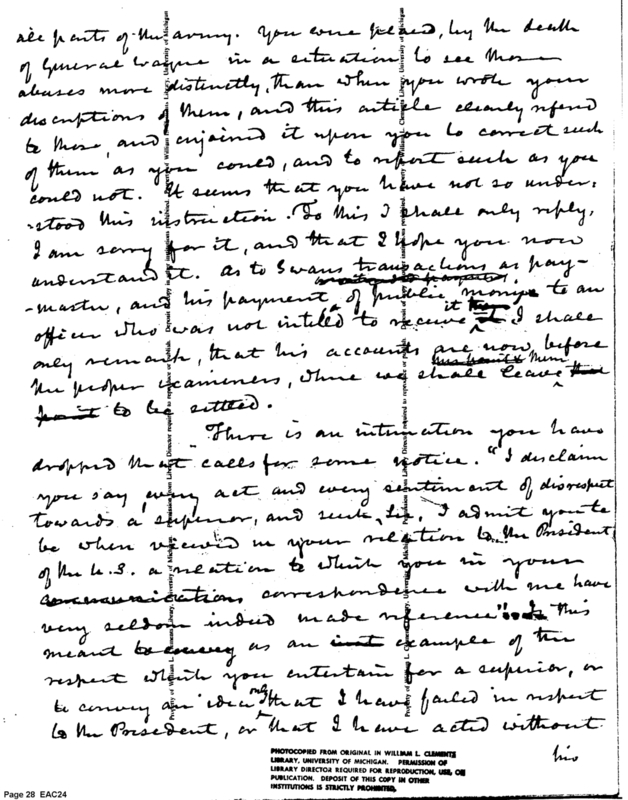 all parts of the army. You were placed, by the death
of General Wayne in a situation to see those
abuses more distinctly, than when you wrote your
discriptions of them, and this article clearly referd
to those, and enjoined it upon you to correct such
of them as you could, and to report such as you
could not. It seems that you have not so under-
-stood this instruction. To this I shall only reply,
I am sorry for it, and that I hope you now
understand it. As to Swans transactions as pay-
-master, and his payment of public money to an
officer who was not intitled to receive it I shall
only remark, that his accounts are now, before
the proper examiners, where we shall leave them
to be settled.
There is an intimation you have
dropped that calls for some notice. "I disclaim
you say, every act and every sentiment of disrespect
towards a superior, and such, Sir, I admit you to
be when received in your relation to the President
of the U.S. a relation to which you in your
correspondence with me have
very seldom indeed made reference". Is this
meant as an example of the
respect which you entertain for a superior, or
to convey an idea only that I have failed in respect
to the President, or that I have acted without
his
Property of William L. Clements Library, University of Michigan
PHOTOCOPIED FROM ORIGINAL IN WILLIAM L. CLEMENTS
LIBRARY, UNIVERSITY OF MICHIGAN. PERMISSION OF
LIBRARY DIRECTOR REQUIRED FOR REPRODUCTION, USE, OR
PUBLICATION. DEPOSIT OF THIS COPY IN OTHER
INSTITUTIONS IS STRICTLY PROHIBITED.
Page 28 EAC24